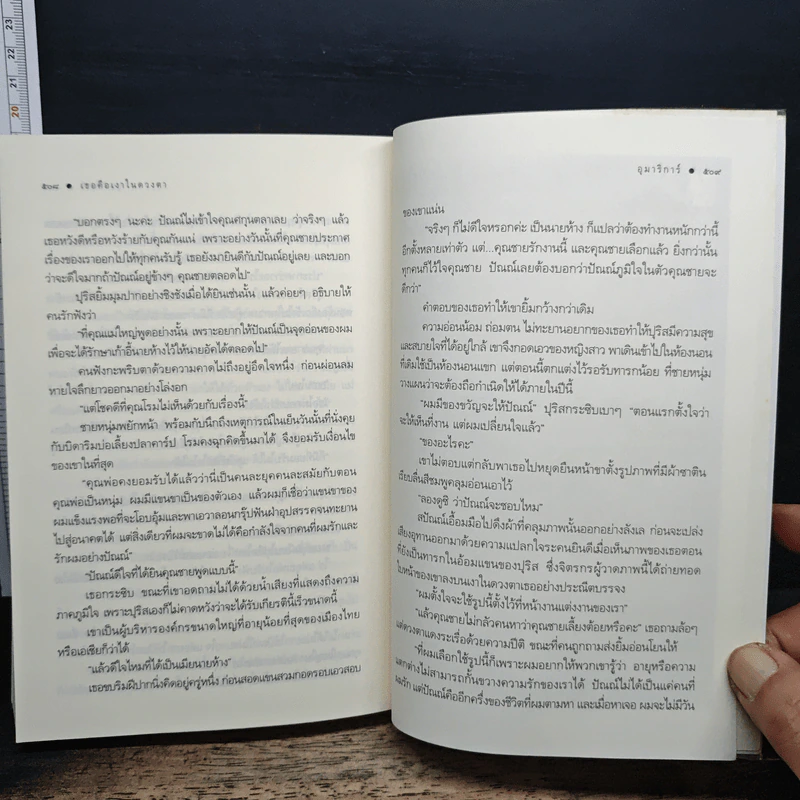 23
22
21
20
๕๐๘ ● เธอคือเงาในดวงตา
"บอกตรงๆ นะคะ ปัณณ์ไม่เข้าใจคุณศกุนตลาเลย ว่าจริงๆ แล้ว
เธอหวังดีหรือหวังร้ายกับคุณกันแน่ เพราะอย่างวันนั้นที่คุณชายประกาศ
เรื่องของเราออกไปให้ทุกคนรับรู้ เธอยังมายินดีกับปัณณ์อยู่เลย และบอก
ว่าจะดีใจมากถ้าปัณณ์อยู่ข้างๆ คุณชายตลอดไป"
ปุริสยิ้มมุมปากอย่างชิงชังเมื่อได้ยินเช่นนั้น แล้วค่อยๆ อธิบายให้
คนรักฟังว่า
"ที่คุณแม่ใหญ่พูดอย่างนั้น เพราะอยากให้ปัณณ์เป็นจุดอ่อนของผม
เพื่อจะได้รักษาเก้าอี้นายห้างไว้ให้นายอัคได้ตลอดไป"
คนฟังกะพริบตาด้วยความคาดไม่ถึงอยู่อึดใจหนึ่ง ก่อนผ่อนลม
หายใจลึกยาวออกมาอย่างโล่งอก
"แต่โชคดีที่คุณโรมไม่เห็นด้วยกับเรื่องนี้"
ชายหนุ่มพยักหน้า พร้อมกับนึกถึงเหตุการณ์ในเย็นวันนั้นที่นั่งคุย
กับบิดาริมบ่อเลี้ยงปลาคาร์ป โรมคงฉุกคิดขึ้นมาได้ จึงยอมรับเงื่อนไข
ของเขาในที่สุด
"คุณพ่อคงยอมรับได้แล้วว่านี่เป็นคนละยุคคนละสมัยกับตอน
คุณพ่อเป็นหนุ่ม ผมมีแขนขาเป็นของตัวเอง แล้วผมก็เชื่อว่าแขนขาของ
ผมแข็งแรงพอที่จะโอบอุ้มและพาเอวาลอนกรุ๊ปฟันฝ่าอุปสรรคจนทะยาน
ไปสู่อนาคตได้ แต่สิ่งเดียวที่ผมจะขาดไม่ได้คือกำลังใจจากคนที่ผมรักและ
รักผมอย่างปัณณ์"
"ปัณณ์ดีใจที่ได้ยินคุณชายพูดแบบนี้"
เธอกระซิบ ขณะที่เขาอดถามไม่ได้ด้วยน้ำเสียงที่แสดงถึงความ
ภาคภูมิใจ เพราะปุริสเองก็ไม่คาดหวังว่าจะได้รับเกียรตินี้เร็วขนาดนี้
เขาเป็นผู้บริหารองค์กรขนาดใหญ่ที่อายุน้อยที่สุดของเมืองไทย
หรือเอเชียก็ว่าได้
"แล้วดีใจไหมที่ได้เป็นเมียนายห้าง"
เธอขบริมฝีปากนิ่งคิดอยู่ครู่หนึ่ง ก่อนสอดแขนสวมกอดรอบเอวสอบ
อุมาริการ์ ● ๕๐๙
ของเขาแน่น
"จริงๆ ก็ไม่ดีใจหรอกค่ะ เป็นนายห้าง ก็แปลว่าต้องทำงานหนักกว่านี้
อีกตั้งหลายเท่าตัว แต่...คุณชายรักงานนี้ และคุณชายเลือกแล้ว ยิ่งกว่านั้น
ทุกคนก็ไว้ใจคุณชาย ปัณณ์เลยต้องบอกว่าปัณณ์ภูมิใจในตัวคุณชายจะ
ดีกว่า"
คำตอบของเธอทำให้เขายิ้มกว้างกว่าเดิม
ความอ่อนน้อม ถ่อมตน ไม่ทะยานอยากของเธอทำให้ปุริสมีความสุข
และสบายใจที่ได้อยู่ใกล้ เขาจึงกอดเอวของหญิงสาว พาเดินเข้าไปในห้องนอน
ที่เดิมใช้เป็นห้องนอนแขก แต่ตอนนี้ตกแต่งไว้รอรับทารกน้อย ที่ชายหนุ่ม
วางแผนว่าจะต้องถือกำเนิดให้ได้ภายในปีนี้
"ผมมีของขวัญจะให้ปัณณ์" ปุริสกระซิบเบาๆ "ตอนแรกตั้งใจว่า
จะให้เห็นที่งาน แต่ผมเปลี่ยนใจแล้ว"
"ของอะไรคะ"
เขาไม่ตอบแต่กลับพาเธอไปหยุดยืนหน้าขาตั้งรูปภาพที่มีผ้าซาติน
เรียบลื่นสีชมพูคลุมอ่อนเอาไว้
"ลองดูซิ ว่าปัณณ์จะชอบไหม"
สปัณณ์เอื้อมมือไปดึงผ้าที่คลุมภาพนั้นออกอย่างลังเล ก่อนจะเปล่ง
เสียงอุทานออกมาด้วยความแปลกใจระคนยินดีเมื่อเห็นภาพของเธอตอน
ที่ยังเป็นทารกในอ้อมแขนของปุริส ซึ่งจิตรกรผู้วาดภาพนี้ได้ถ่ายทอด
ใบหน้าของเขาลงบนเงาในดวงตาเธออย่างประณีตบรรจง
"ผมตั้งใจจะใช้รูปนี้ตั้งไว้ที่หน้างานแต่งงานของเรา"
"แล้วคุณชายไม่กลัวคนหาว่าคุณชายเลี้ยงต้อยหรือคะ" เธอถามล้อๆ
แต่ดวงตาแดงระเรื่อด้วยความปีติ ขณะที่คนถูกถามส่งยิ้มอ่อนโยนให้
"ที่ผมเลือกใช้รูปนี้ก็เพราะผมอยากให้พวกเขารู้ว่า อายุหรือความ
แตกต่างไม่สามารถกั้นขวางความรักของเราได้ ปัณณ์ไม่ได้เป็นแค่คนที่
ผมรัก แต่ปัณณ์คืออีกครึ่งของชีวิตที่ผมตามหา และเมื่อหาเจอ ผมจะไม่มีวัน